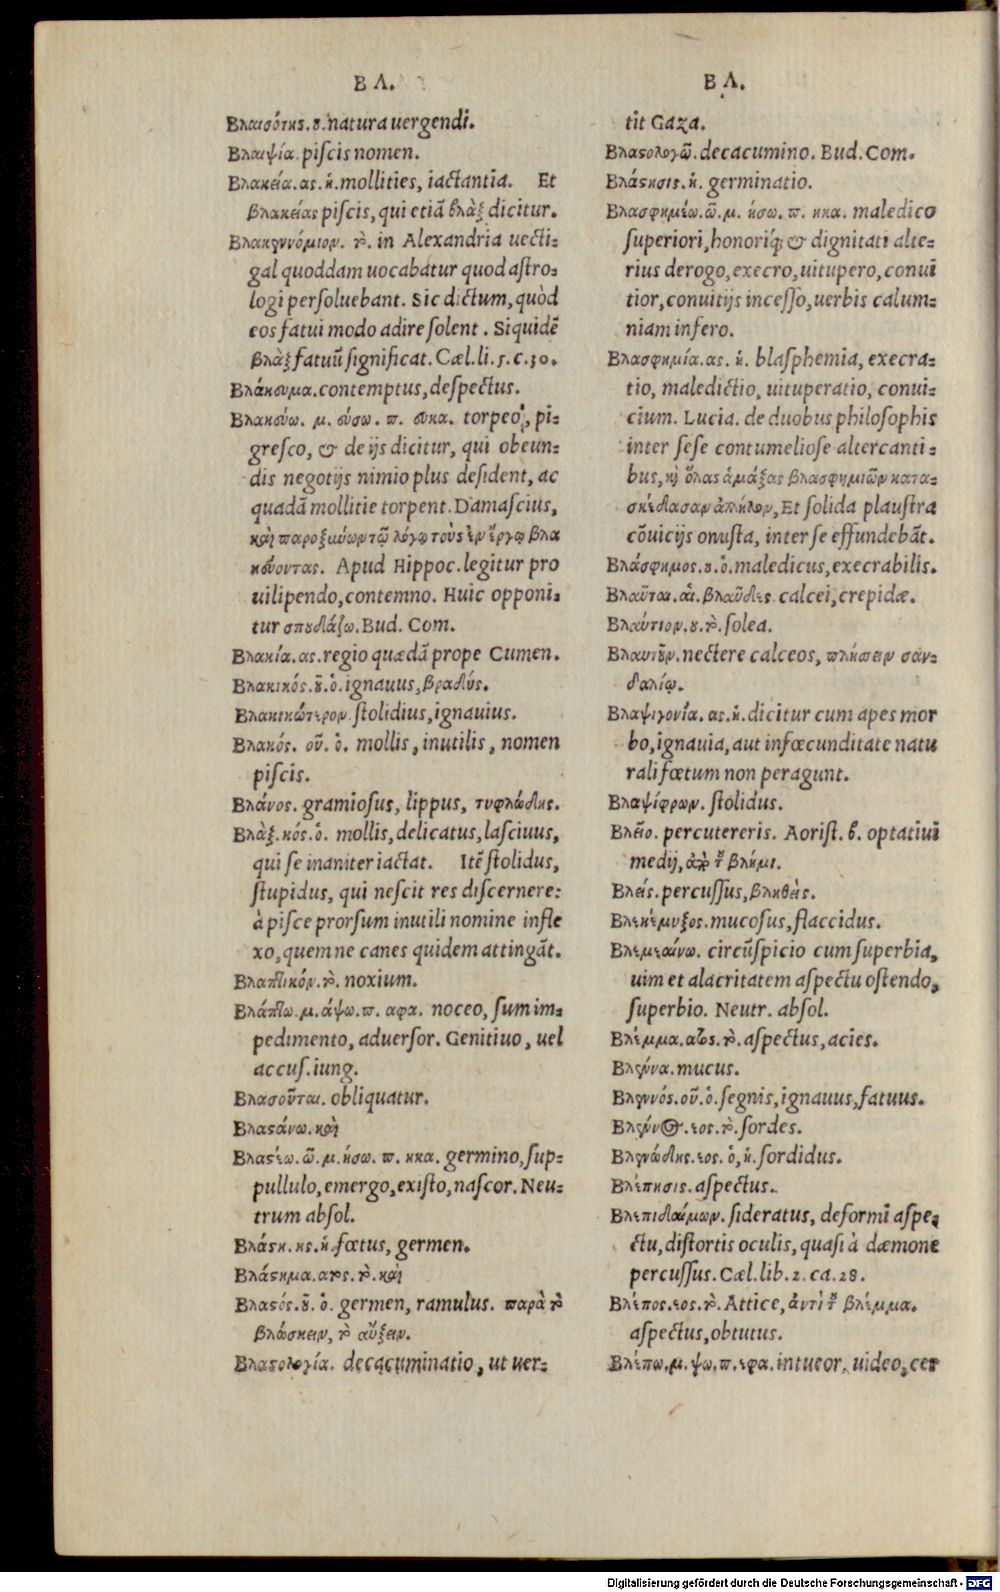 Β Λ.
Βλαισότης. ȣ. natura uergendi.
Βλαιψία. piſcis nomen.
Βλακεία. ας. ἡ. mollities, iactantia. Et
βλακείας piſcis, qui etiā βλὰξ dicitur.
Βλακεννόμιον. τὸ. in Alexandria uecti-
gal quoddam uocabatur quod aſtro-
logi perſoluebant. Sic dictum, quòd
eos fatui modo adire ſolent. Siquidē
βλὰξ fatuū ſignificat. Cæl. li. 5. c. 30.
Βλάκευμα. contemptus, deſpectus.
Βλακεύω. μ. εύσω. π. ευκα. torpeo, pi-
greſco, & de ijs dicitur, qui obeun-
dis negotijs nimio plus deſident, ac
quadā mollitie torpent. Damaſcius,
καὶ παροξύνων τῷ λόγῳ τοὺς ἐν ἔργῳ βλα
κεύοντας. Apud Hippoc. legitur pro
uilipendo, contemno. Huic opponi-
tur σπουδάζω. Bud. Com.
Βλακία. ας. regio quædā prope Cumen.
Βλακικός. ȣ͂. ὁ. ignauus, βραδύς.
Βλακικώτερον. ſtolidius, ignauius.
Βλακός. οῦ. ὁ. mollis, inutilis, nomen
piſcis.
Βλάνος. gramioſus, lippus, τυφλώδης.
Βλὰξ. κός. ὁ. mollis, delicatus, laſciuus,
qui ſe inaniter iactat. Itē ſtolidus,
ſtupidus, qui neſcit res diſcernere:
à piſce prorſum inutili nomine infle
xo, quem ne canes quidem attingāt.
Βλαπτικόν. τὸ. noxium.
Βλάπτω. μ. άψω. π. αφα. noceo, ſum im-
pedimento, aduerſor. Genitiuo, uel
accuſ. iung.
Βλασοῦται. obliquatur.
Βλαϛάνω. καὶ
Βλαϛέω. ῶ. μ. ήσω. π. ηκα. germino, ſup-
pullulo, emergo, exiſto, naſcor. Neu-
trum abſol.
Βλάϛη. ης. ἡ. fœtus, germen.
Βλάϛημα. ατος. τὸ. καὶ
Βλαϛός. ȣ͂. ὁ. germen, ramulus. παρὰ τὸ
βλώσκειν, τὸ αὔξειν.
Βλαϛολογία. decacuminatio, ut uer-
Β Λ.
tit Gaza.
Βλαϛολογῶ. decacumino. Bud. Com.
Βλάϛησις. ἡ. germinatio.
Βλασφημέω. ῶ. μ. ήσω. π. ηκα. maledico
ſuperiori, honoriq́; & dignitati alte-
rius derogo, execro, uitupero, conui
tior, conuitijs inceſſo, uerbis calum-
niam infero.
Βλασφημία. ας. ἡ. blaſphemia, execra-
tio, maledictio, uituperatio, conui-
cium. Lucia. de duobus philoſophis
inter ſeſe contumelioſe altercanti-
bus, καὶ ὅλας ἁμάξας βλασφημιῶν κατα-
σκέδασαν ἀπήλον, Et ſolida plauſtra
cōuicijs onuſta, inter ſe effundebāt.
Βλάσφημος. ȣ. ὁ. maledicus, execrabilis.
Βλαῦται. αἱ. βλαῦδες. calcei, crepidæ.
Βλαύτιον. ȣ. τὸ. ſolea.
Βλαυτοῦν. nectere calceos, πλήσσειν σαν-
δαλίῳ.
Βλαψιγονία. ας. ἡ. dicitur cum apes mor
bo, ignauia, aut infœcunditate natu
rali fœtum non peragunt.
Βλαψίφρων. ſtolidus.
Βλεῖο. percutereris. Aoriſt. β. optatiui
medij, ἀπὸ τοῦ βλῆμι.
Βλείς. percuſſus, βληθείς.
Βλεκέμυξος. mucoſus, flaccidus.
Βλεμεαίνω. circūſpicio cum ſuperbia,
uim et alacritatem aſpectu oſtendo,
ſuperbio. Neutr. abſol.
Βλέμμα. ατος. τὸ. aſpectus, acies.
Βλέννα. mucus.
Βλεννός. οῦ. ὁ. ſegnis, ignauus, fatuus.
Βλέννος. εος. τὸ. ſordes.
Βλεννώδης. εος. ὁ, ἡ. ſordidus.
Βλέπησις. aſpectus.
Βλεπιδαίμων. ſideratus, deformi aſpe-
ctu, diſtortis oculis, quaſi à dæmone
percuſſus. Cæl. lib. 2. ca. 28.
Βλέπος. εος. τὸ. Attice, ἀντὶ τοῦ βλέμμα.
aſpectus, obtutus.
Βλέπω. μ. ψω. π. εφα. intueor, uideo, cer
Digitalisierung gefördert durch die Deutsche Forschungsgemeinschaft - DFG